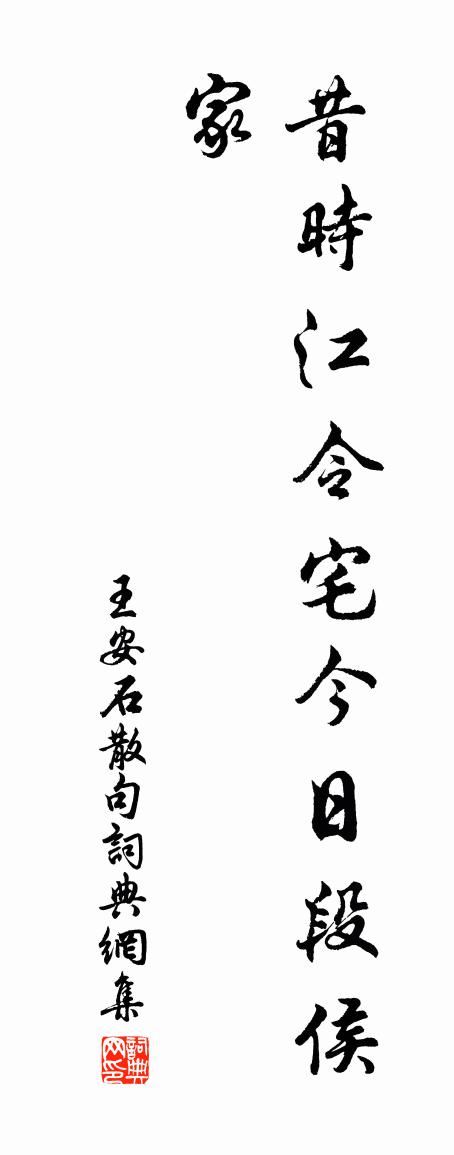 昔時江令宅今日段侯
家
王安石散句詞典網集
詞典网印